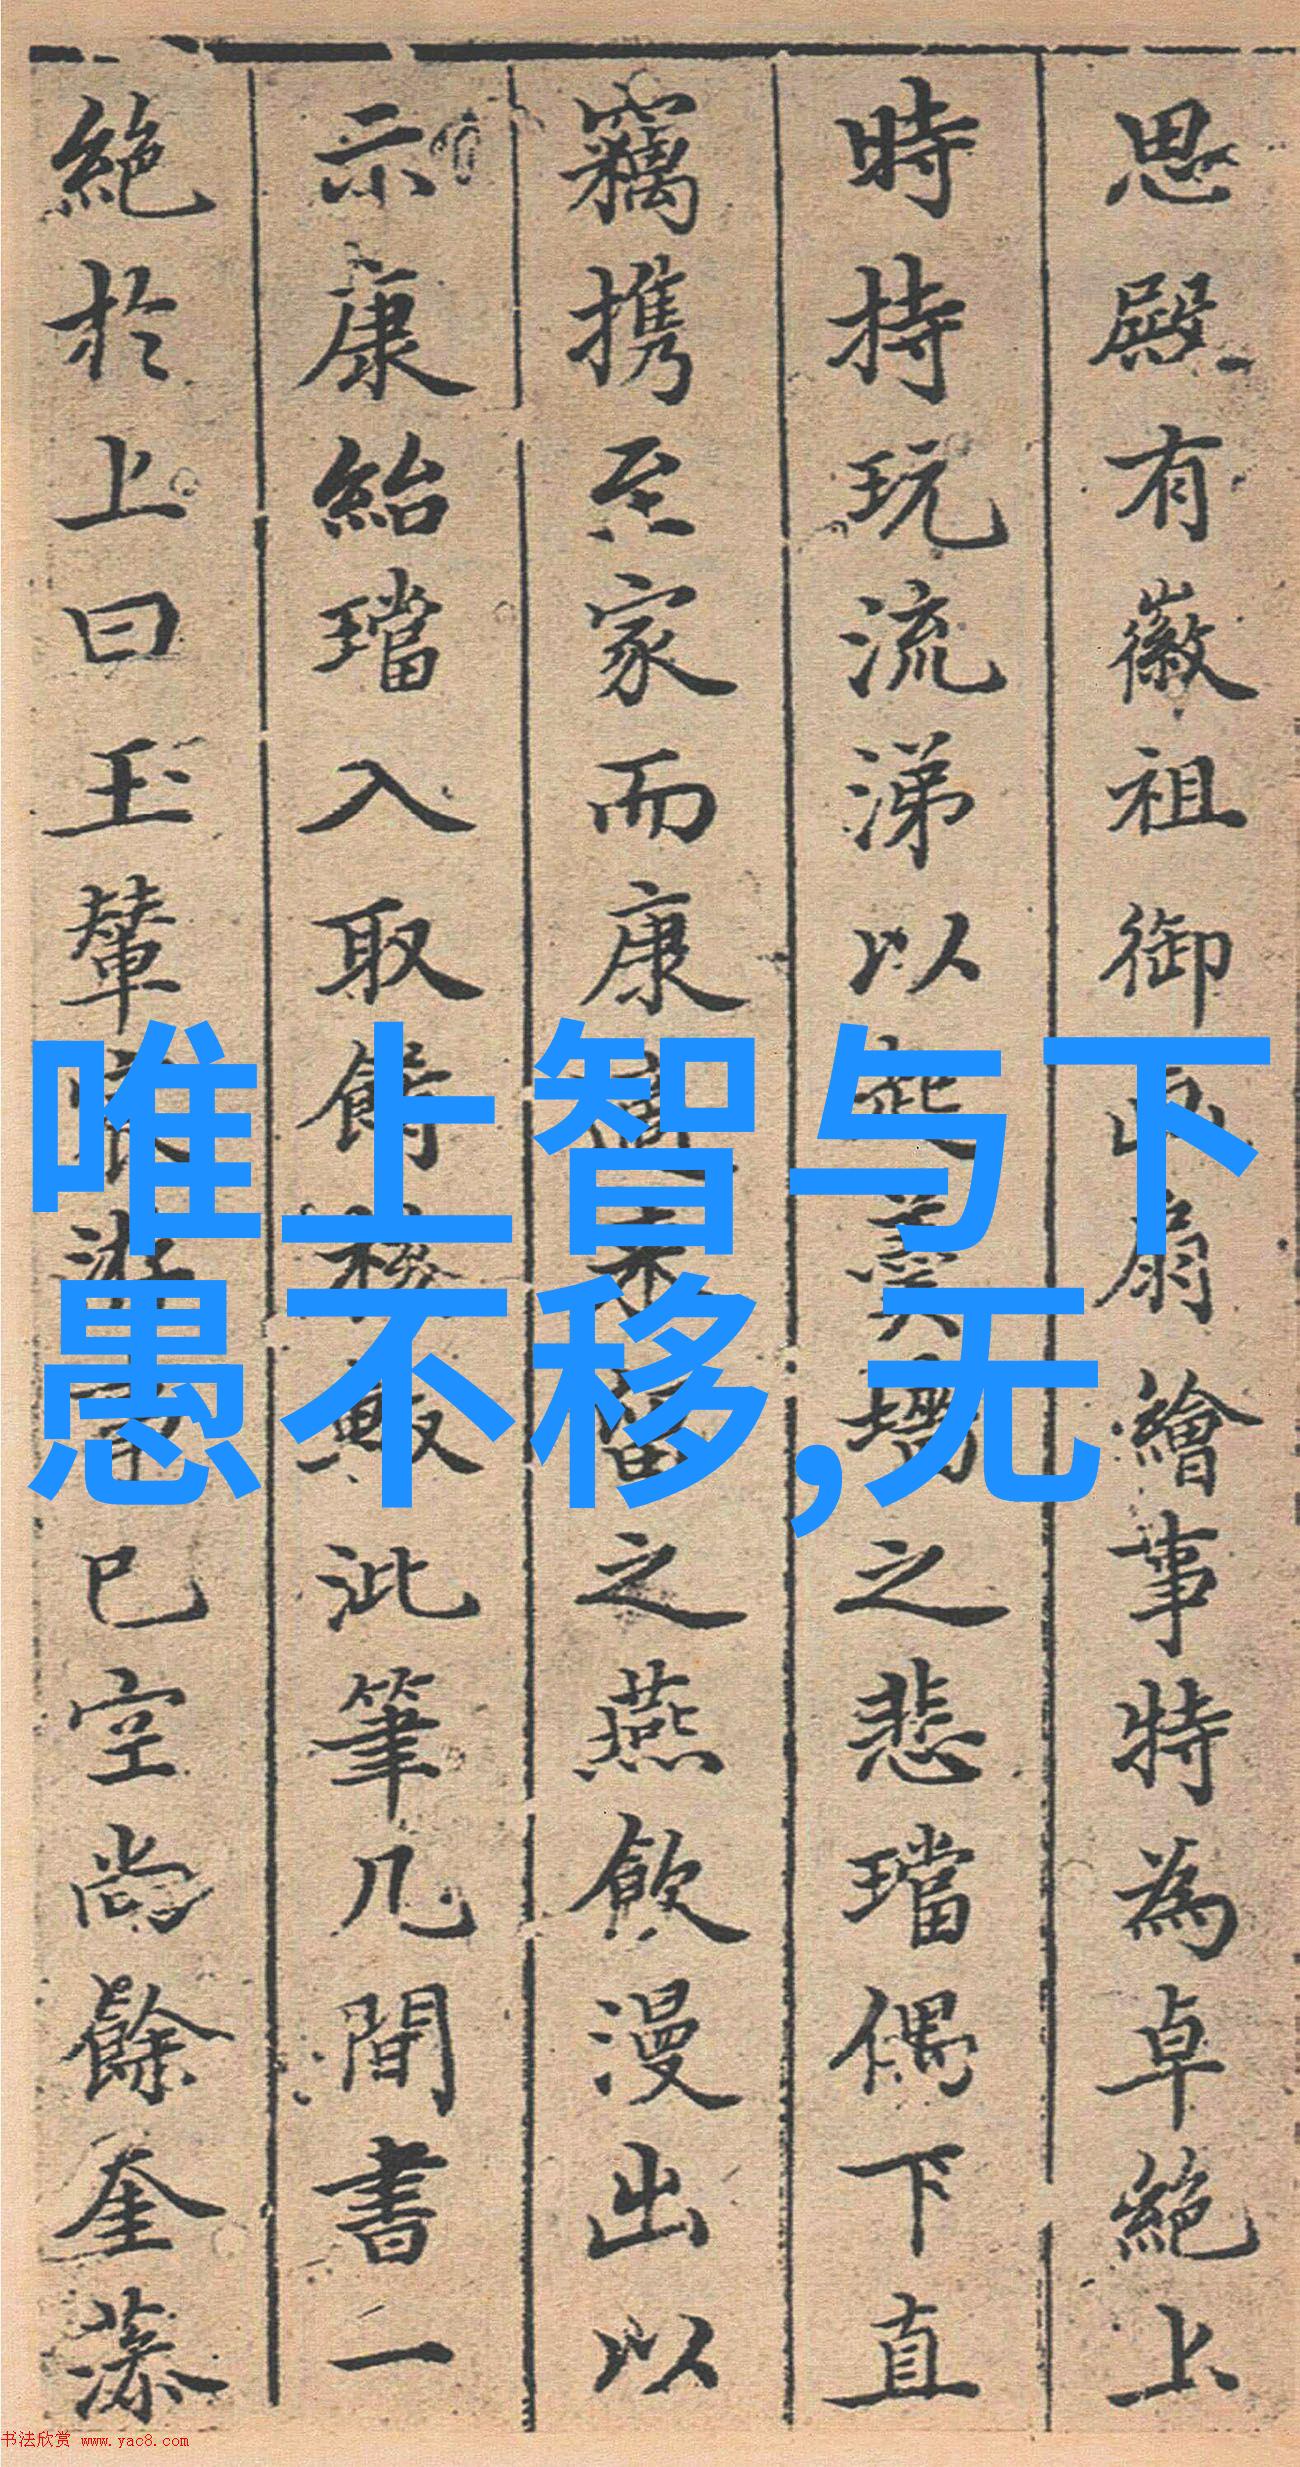 思殿有徽祖御画扇繪事特為卓絕上
時持玩流涕以起羹墻之悲璫偶下直
竊携至家而康來留之燕飲漫出以
示康紿璫入取餚核此筆几間書一
絕於上曰玉輦宸游事已空尚餘奎藻
唯上智与下
愚不移,无
书法欣赏 www.yac8.com